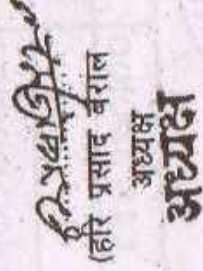 (हरि प्रसाद बराल
अध्यक्ष
अध्यक्ष